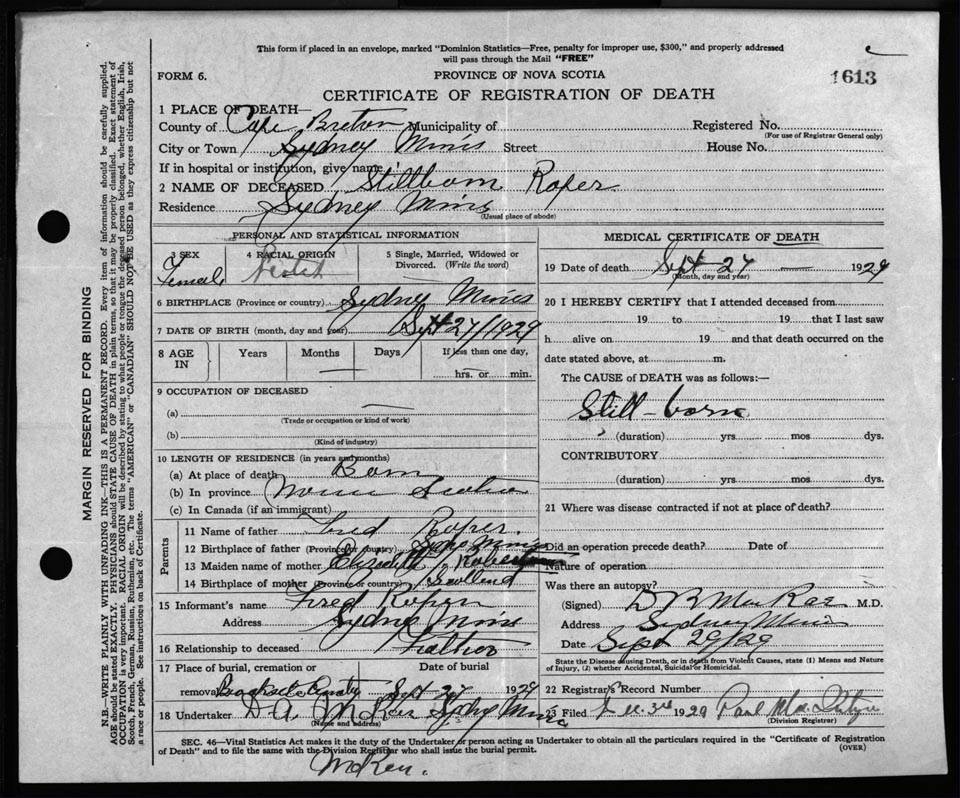 This form if placed in an envelope, marked "Dominion Statistics—Free, penalty for improper use, $300," and properly addressed
will pass through the Mail "FREE"
FORM 6.
PROVINCE OF NOVA SCOTIA
1613
CERTIFICATE OF REGISTRATION OF DEATH
1 PLACE OF DEATH—
County of Cape Breton Municipality of Registered No.
(For use of Registrar General only)
City or Town Sydney Mines Street House No.
If in hospital or institution, give name
2 NAME OF DECEASED Stillborn Roper
Residence Sydney Mines
(Usual place of abode)
PERSONAL AND STATISTICAL INFORMATION
3 SEX 4 RACIAL ORIGIN 5 Single, Married, Widowed or Divorced. (Write the word)
Female
6 BIRTHPLACE (Province or country) Sydney Mines
7 DATE OF BIRTH (month, day and year) Sept 27/1929
8 AGE IN Years Months Days If less than one day,
hrs. or min.
9 OCCUPATION OF DECEASED
(a)
(Trade or occupation or kind of work)
(b)
(Kind of industry)
10 LENGTH OF RESIDENCE (in years and months)
(a) At place of death Born
(b) In province Nova Scotia
(c) In Canada (if an immigrant)
Parents
11 Name of father Fred Roper
12 Birthplace of father (Province or country) Sydney Mines
13 Maiden name of mother Elizabeth
14 Birthplace of mother (Province or country) Scotland
15 Informant's name Fred Roper
Address Sydney Mines
16 Relationship to deceased Father
17 Place of burial, cremation or Date of burial
removal Sept 27 1929
18 Undertaker D A Sydney Mines
(Name and address)
MEDICAL CERTIFICATE OF DEATH
19 Date of death Sept 27 — 1929
(Month, day and year)
20 I HEREBY CERTIFY that I attended deceased from
19 to 19 that I last saw
h alive on 19 and that death occurred on the
date stated above, at m.
The CAUSE of DEATH was as follows:—
Still-born
(duration) yrs. mos dys.
CONTRIBUTORY
(duration) yrs. mos. dys.
21 Where was disease contracted if not at place of death?
Did an operation precede death? Date of
Nature of operation
Was there an autopsy?
(Signed) D B MacRae M.D.
Address Sydney Mines
Date Sept 29/29
State the Disease causing Death, or in death from Violent Causes, state (1) Means and Nature
of Injury, (2) whether Accidental, Suicidal or Homicidal.
22 Registrar's Record Number
23 Filed Dec. 3rd 1929 Paul
(Division Registrar)
SEC. 46—Vital Statistics Act makes it the duty of the Undertaker or person acting as Undertaker to obtain all the particulars required in the "Certificate of Registration
of Death" and to file the same with the Division Registrar who shall issue the burial permit.
(OVER)
MARGIN RESERVED FOR BINDING
N.B.—WRITE PLAINLY WITH UNFADING INK—THIS IS A PERMANENT RECORD. Every item of information should be carefully supplied.
AGE should be stated EXACTLY. PHYSICIANS should STATE CAUSE OF DEATH in plain terms, so that it may be properly classified. Exact statement of
OCCUPATION is very important. RACIAL ORIGIN will be described by stating to what people or tongue the deceased person belonged, whether English, Irish,
Scotch, French, German, Russian, Ruthenian, etc. The terms "AMERICAN" or "CANADIAN" SHOULD NOT BE USED as they express citizenship but not
a race or people. See instructions on back of Certificate.